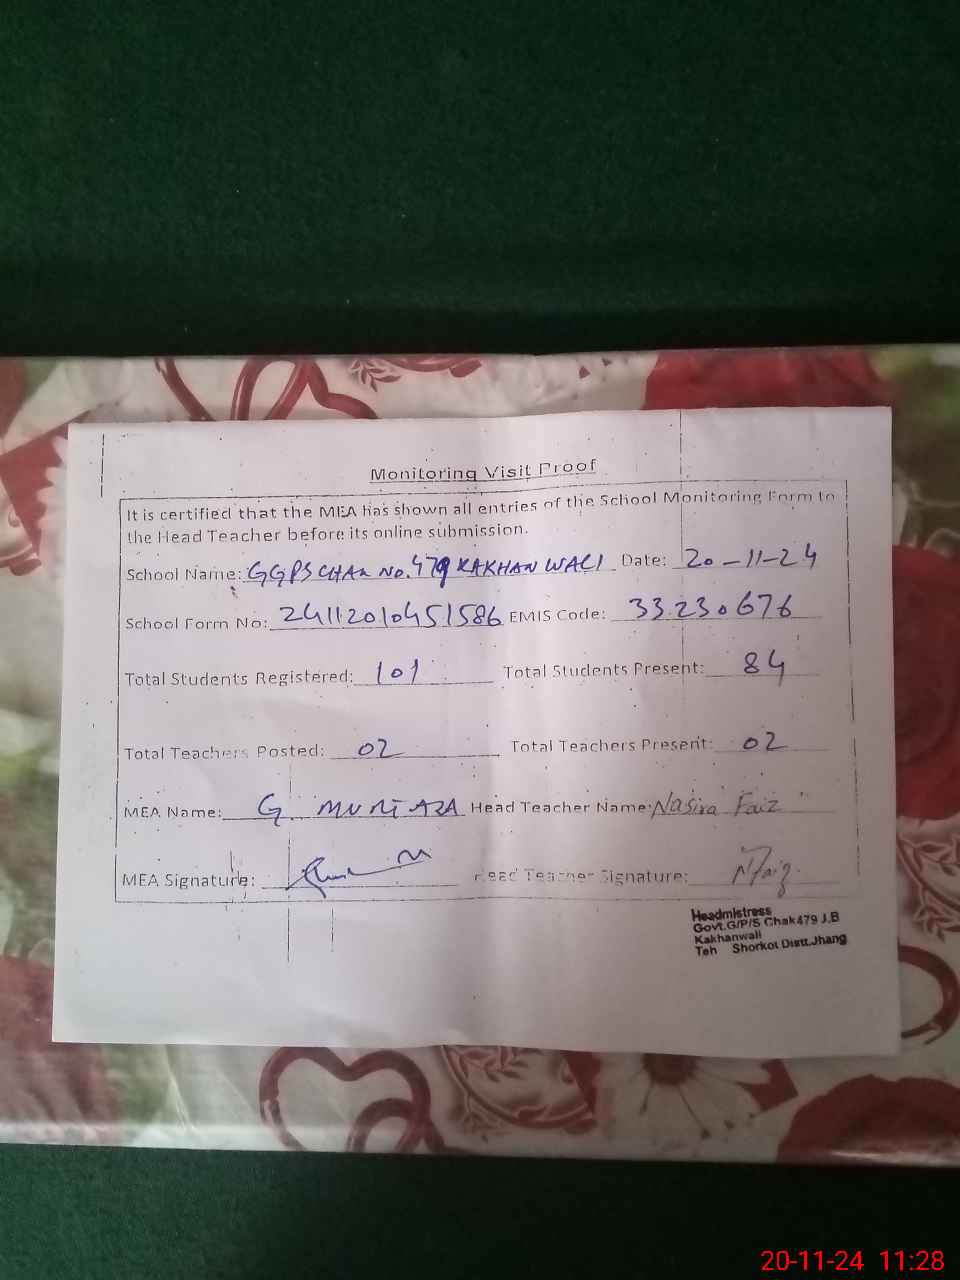 Monitoring Visit Proof
It is certified that the MEA has shown all entries of the School Monitoring Form to
the Head Teacher before its online submission.
School Name: GGPS CHAK NO. 479 KAKHAN WALI Date: 20-11-24
School Form No: 24112010451586 EMIS Code: 33230676
Total Students Registered: 101 Total Students Present: 84
Total Teachers Posted: 02 Total Teachers Present: 02
MEA Name: G. MURTAZA Head Teacher Name: Nasira Faiz
MEA Signature: Head Teacher Signature: N Faiz
Headmistress
Govt.G/P/S Chak479 J.B
Kakhanwali
Teh Shorkot Distt.Jhang
20-11-24 11:28